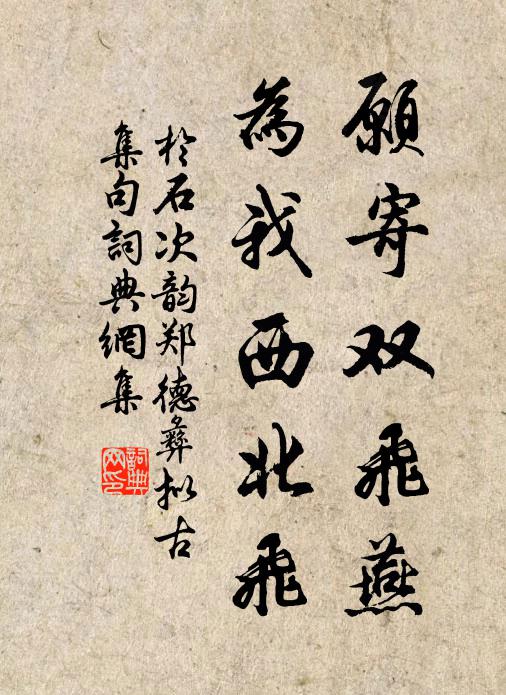 願寄双飛燕
為我西北飛
於石次韵郑德彝拟古
集句詞典網集
詞典
网印